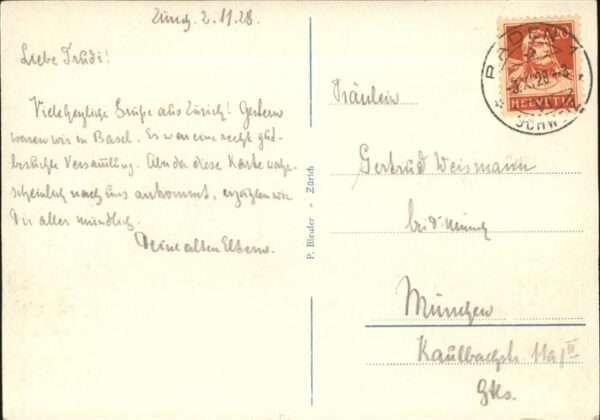 Zürich, 2. 11. 28.
Liebe Trudi!
Viele herzliche Grüße aus Zürich! Gestern
waren wir in Basel. Es war eine recht gut
besuchte Versammlung. Aber da diese Karte wahr-
scheinlich nach uns ankommt, erzählen wir
Dir alles mündlich.
Deine alten Eltern.
P. Bleuler - Zürich
20
HELVETIA
BADEN 1
28
SCHWEIZ
Fräulein
Gertrud Weismann
bei
München
Kaulbachstr. 11a III
Gths.